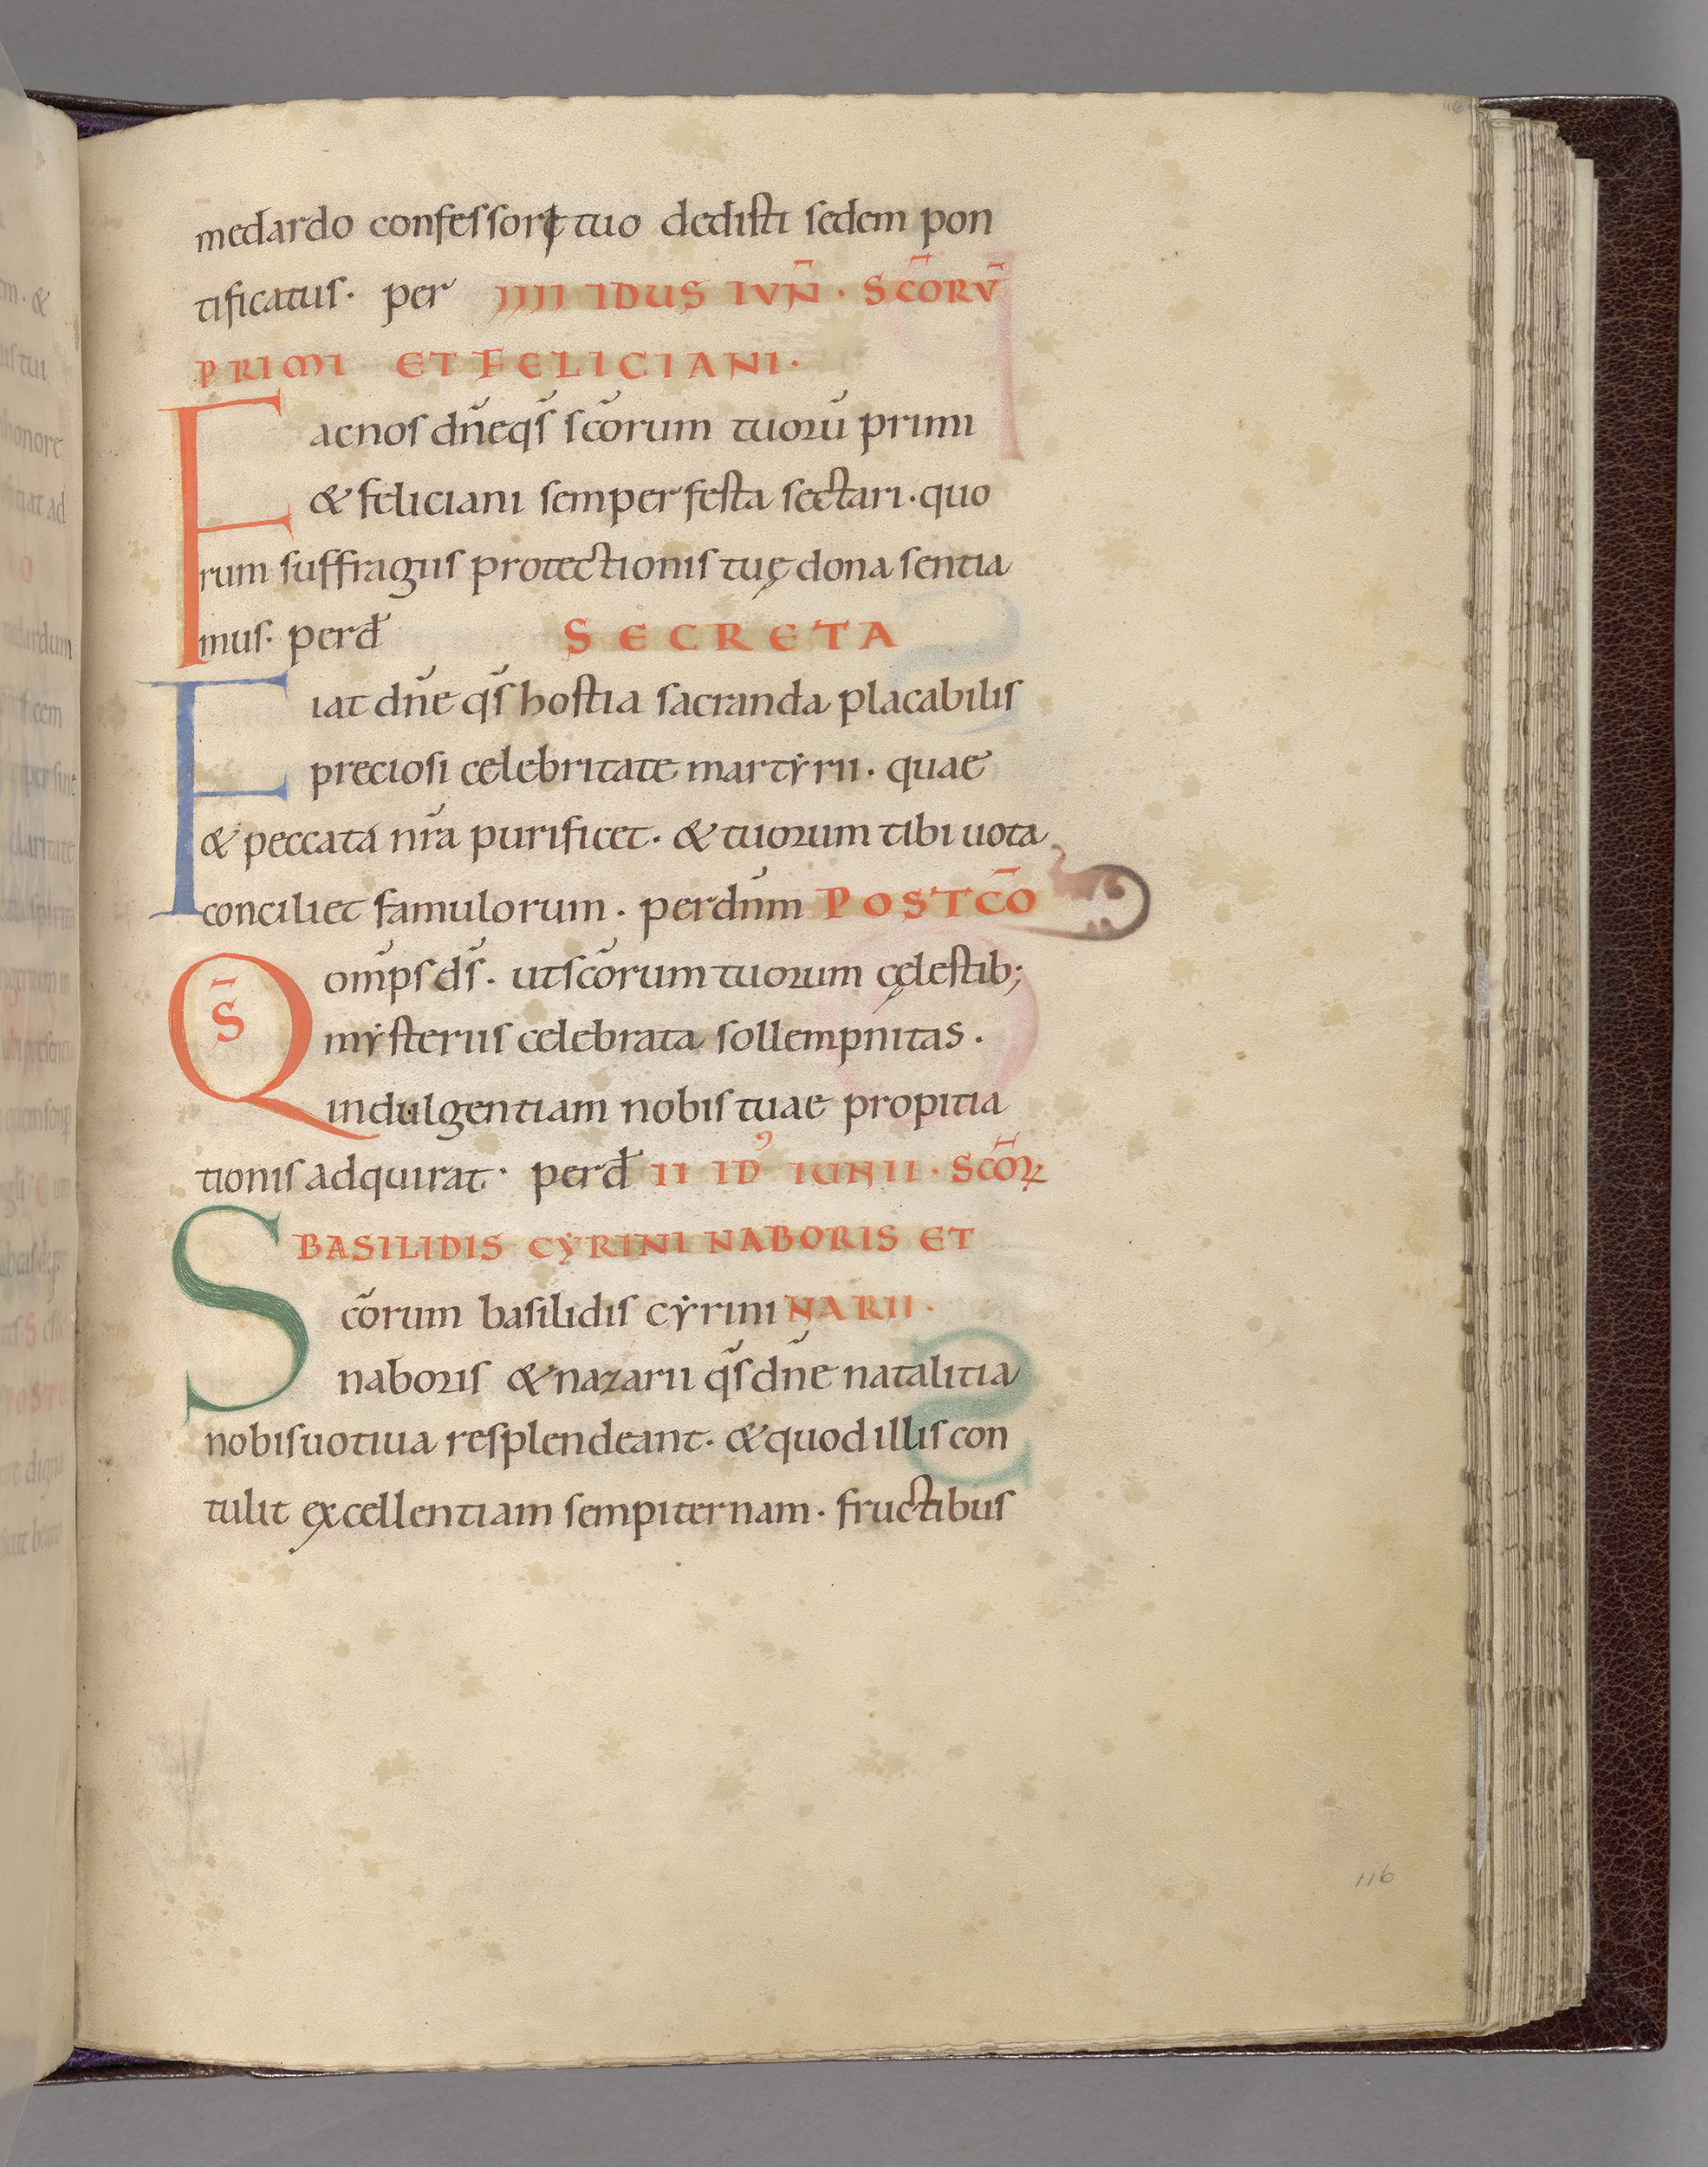 medardo confessori tuo dedisti sedem pon
tificatus· per IIII IDUS IVN̄· SC̄ORV̄
PRIMI ET FELICIANI·
Fac nos dn̄e qs̄ sc̄orum tuorū primi
& feliciani semper festa sectari· quo
rum suffragiis protectionis tuę dona sentia
mus· perd̄ SECRETA
Fiat dn̄e qs̄ hostia sacranda placabilis
preciosi celebritate martẏrii· quae
& peccata nr̄a purificet· & tuorum tibi uota
conciliet famulorum· perdn̄m POSTC̄O
QS̄ om̄ps ds̄· ut sc̄orum tuorum cęlestib;
mẏsteriis celebrata sollempnitas·
indulgentiam nobis tuae propitia
tionis adquirat· perd̄ II ID' IUNII· SC̄OꝜ
BASILIDIS CẎRINI NABORIS ET
Sc̄orum basilidis cẏrini NARII·
naboris & nazarii qs̄ dn̄e natalitia
nobis uotiua resplendeant· & quod illis con
tulit excellentiam sempiternam· fructibus
116